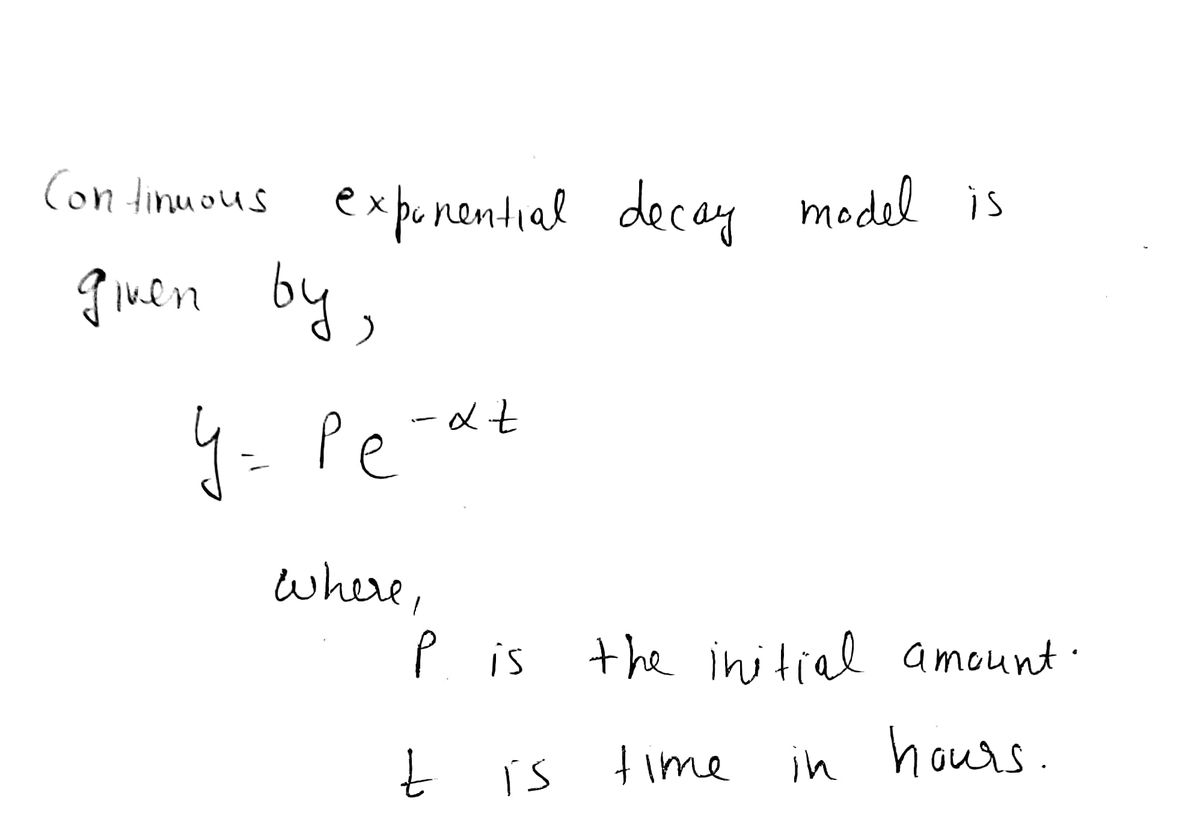 Continuous exponential decay model is
given by,
y = Pe^{-αt}
where,
P is the initial amount.
t is time in hours.